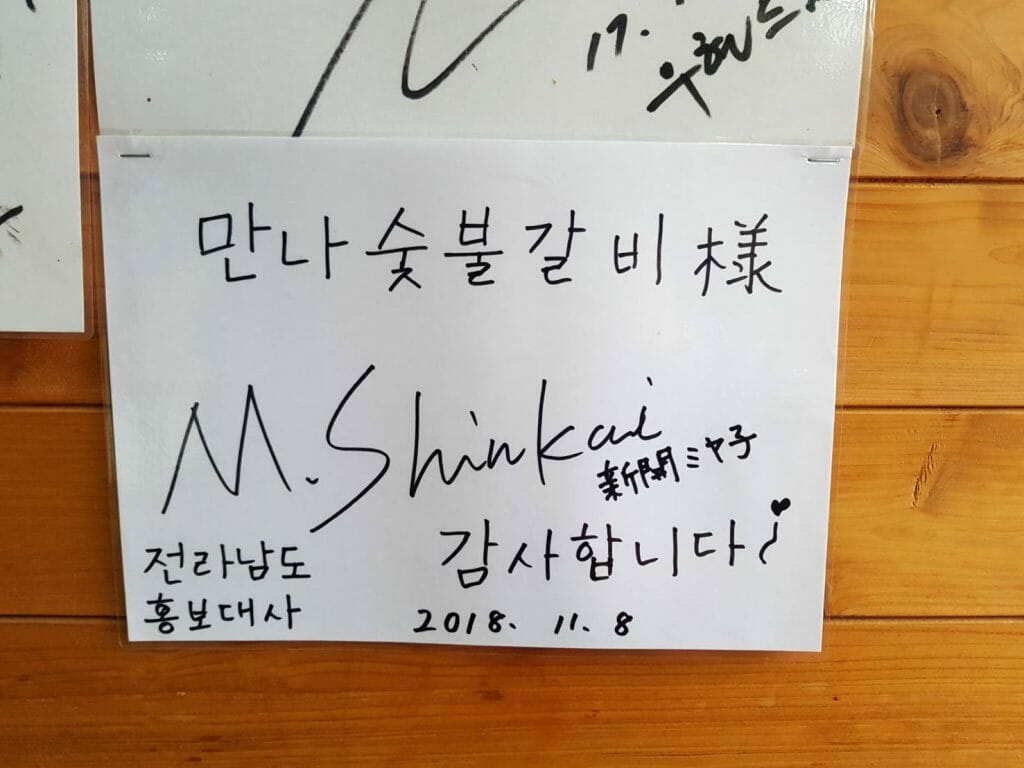 19.
만나숯불갈비様
M.Shinkai
新開ミヤ子
감사합니다
전라남도
홍보대사
2018. 11. 8